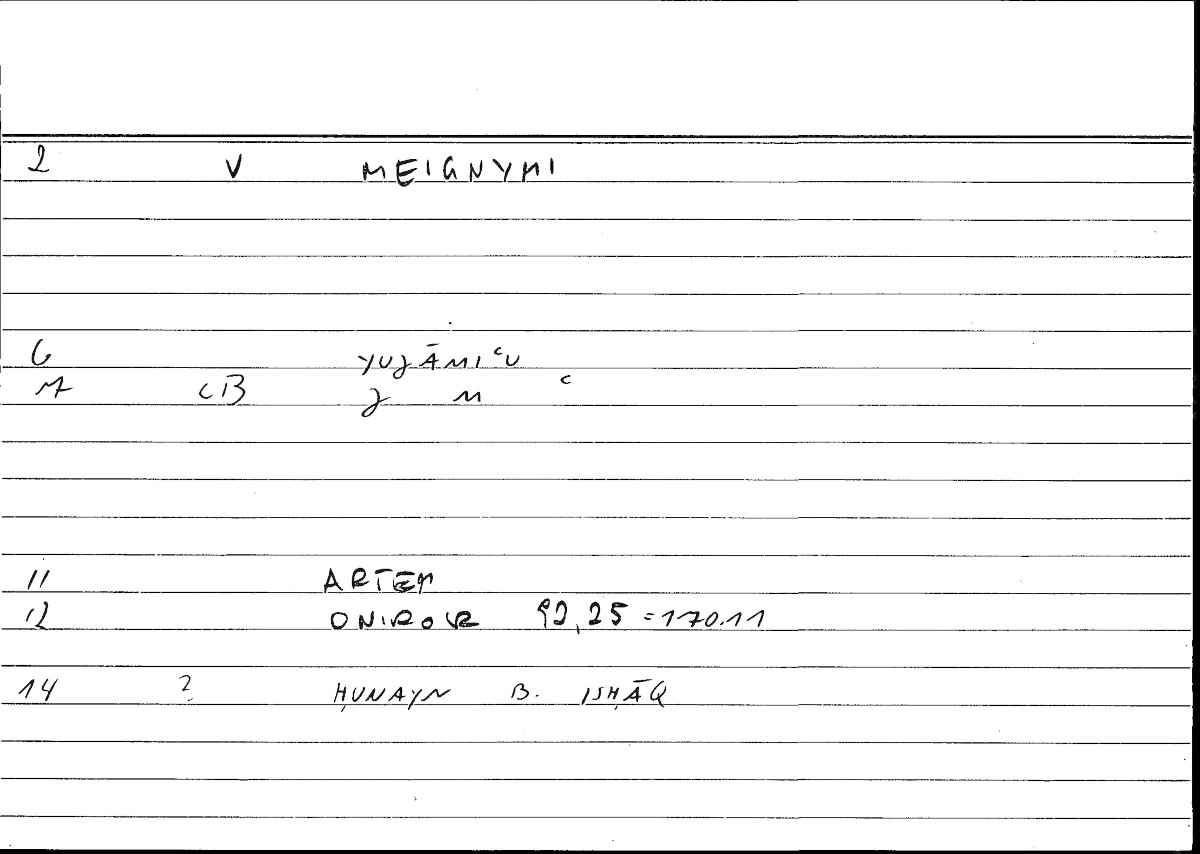 2 V MEIGNYMI
6 YUJĀMIʿU
M CB J M ʿ
11 ARTEM
12 ONIROKR 92,25 = 170.11
14 ? ḤUNAYN B. ISḤĀQ